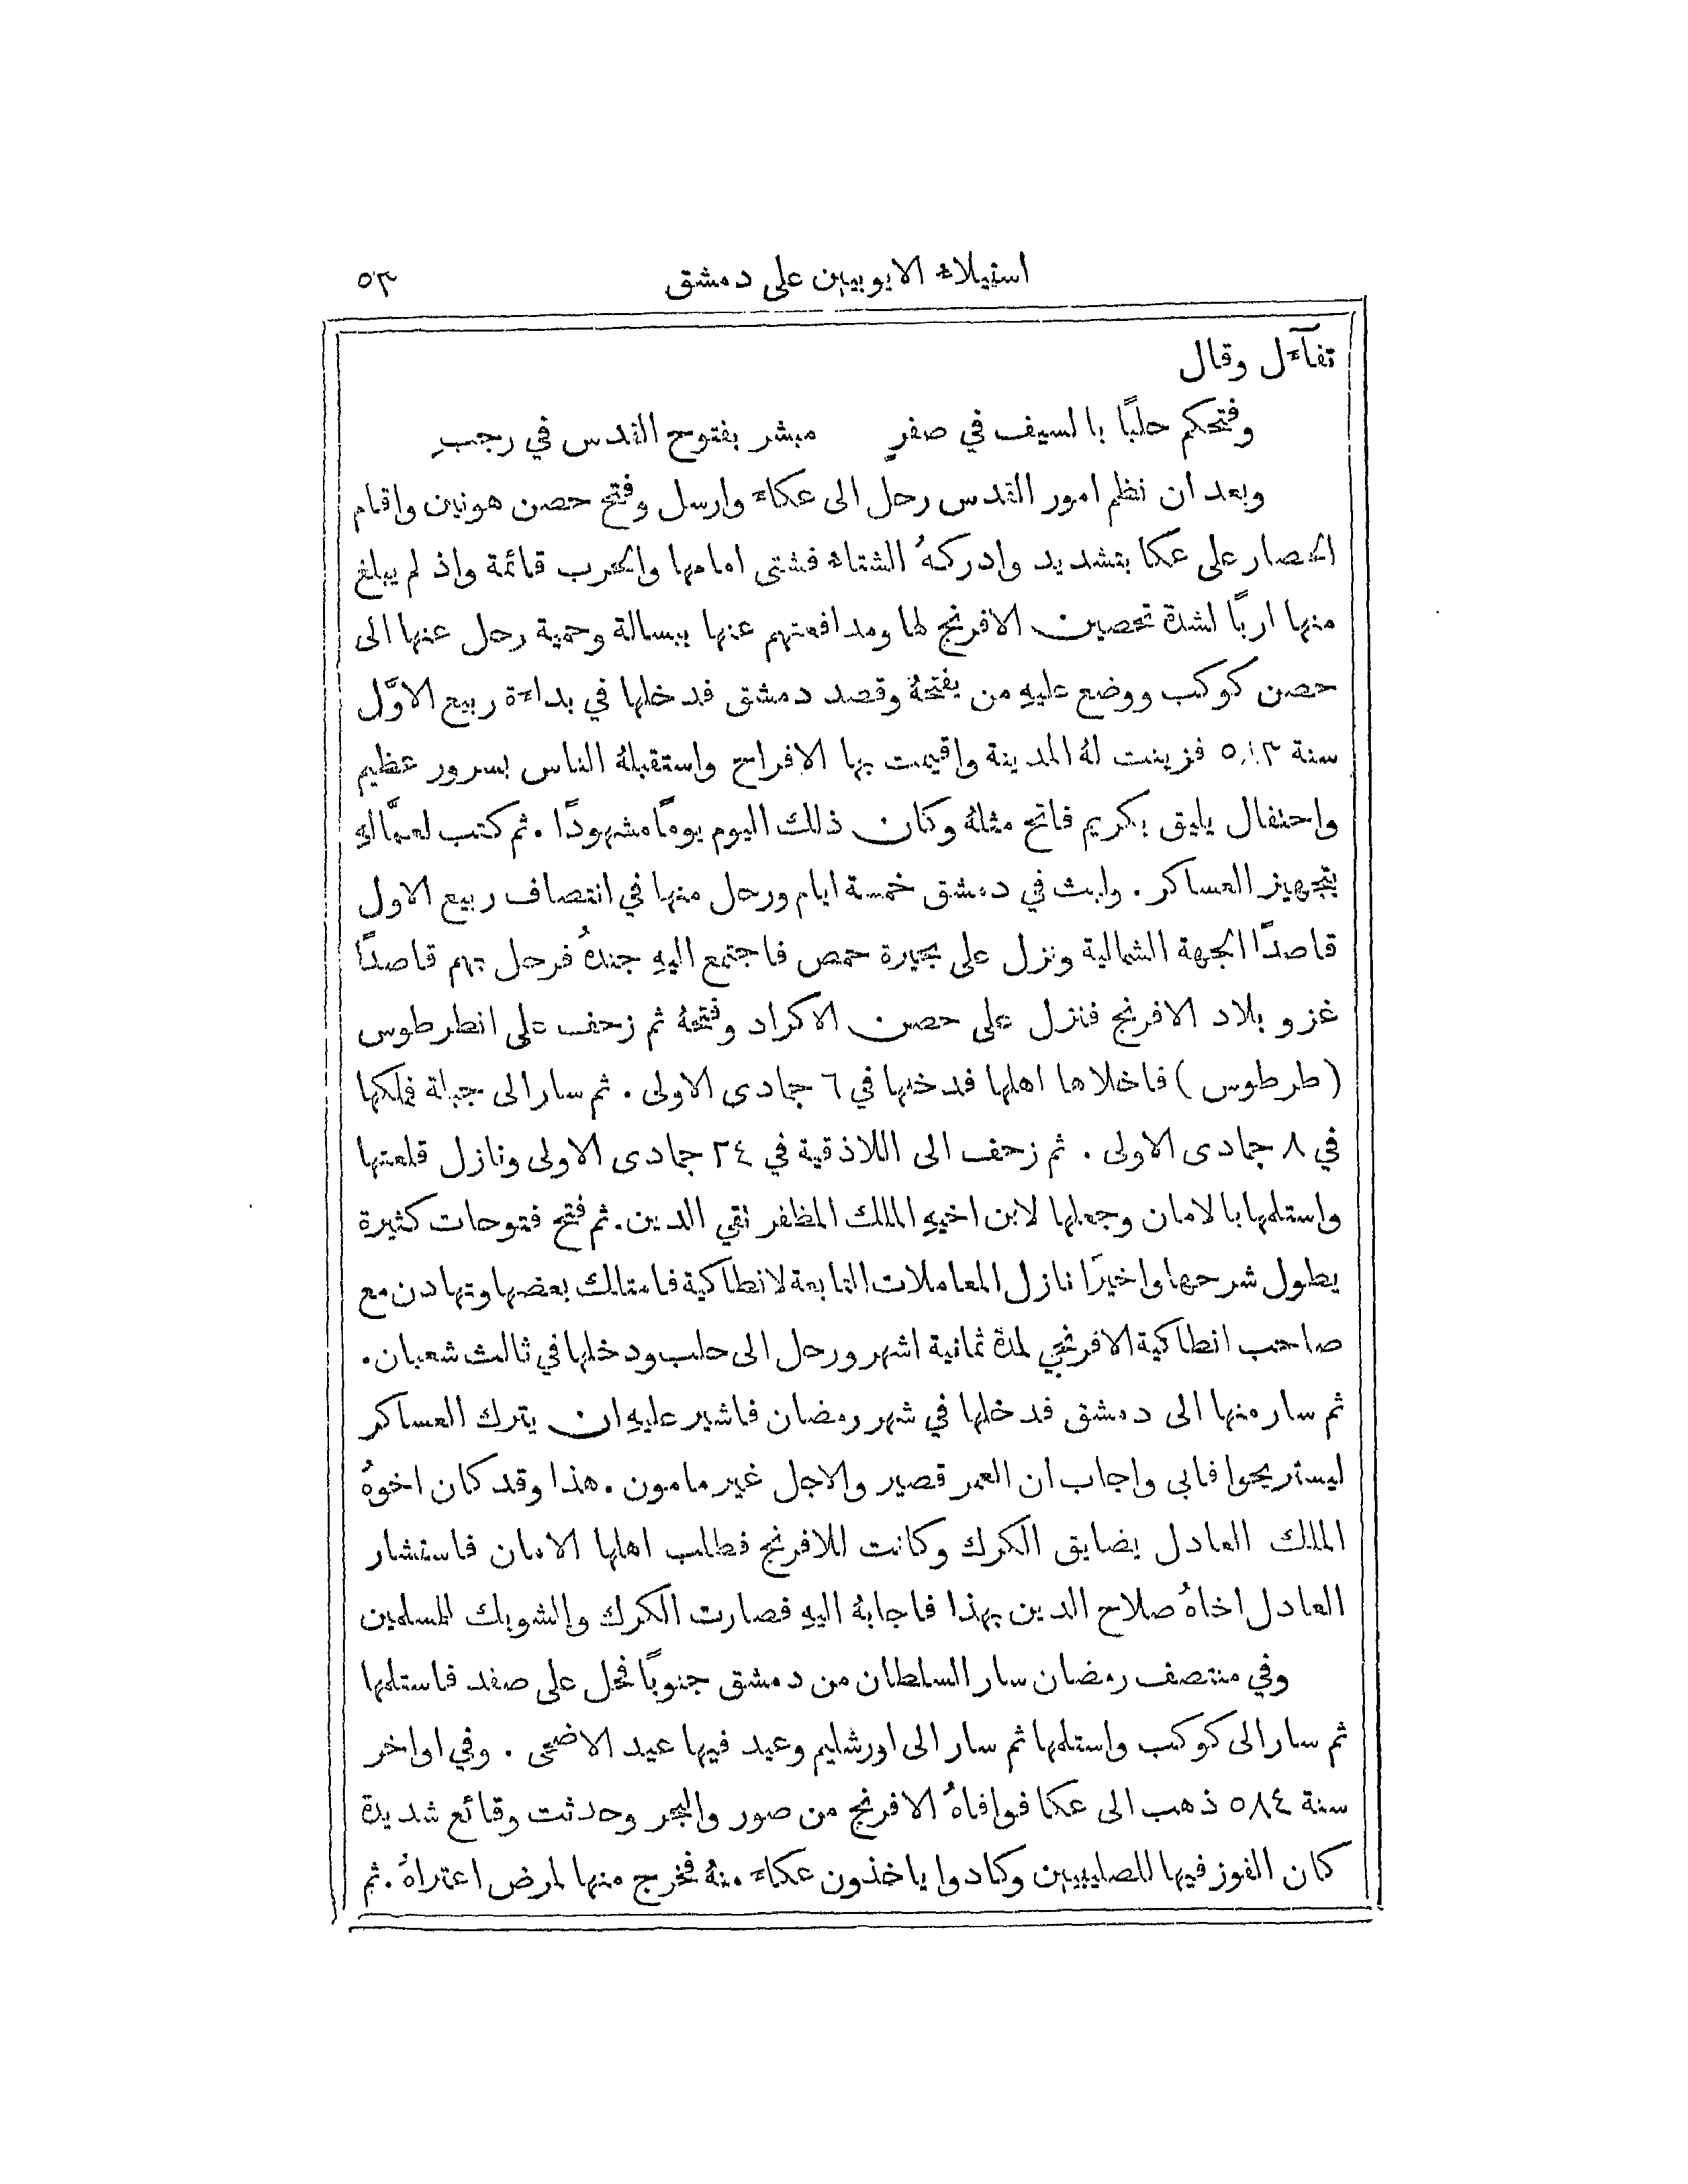 استيلاء الايوبيين على دمشق ٥٣
تفآءل وقال
وفتحكم حلبًا بالسيف في صفرٍ مبشر بفتوح القدس في رجبِ
وبعد ان نظم امور القدس رحل الى عكاء وارسل وفتح حصن هونين واقام
الحصار على عكا بتشديد وادركهُ الشتاء فشتى امامها والحرب قائمة واذ لم يبلغ
منها اربًا لشدة تحصين الافرنج لها ومدافعتهم عنها ببسالة وحمية رحل عنها الى
حصن كوكب ووضع عليهِ من يفتحهُ وقصد دمشق فدخلها في بداءة ربيع الاوَّل
سنة ٥٨٣ فزينت لهُ المدينة واقيمت بها الافراح واستقبلهُ الناس بسرور عظيم
واحتفال يليق بكريم فاتح مثلهُ وكان ذلك اليوم يومًا مشهودًا . ثم كتب لعمَّالهِ
بتجهيز العساكر . ولبث في دمشق خمسة ايام ورحل منها في انتصاف ربيع الاول
قاصدًا الجهة الشمالية ونزل على بحيرة حمص فاجتمع اليهِ جندهُ فرحل بهم قاصدًا
غزو بلاد الافرنج فنزل على حصن الاكراد وفتحهُ ثم زحف على انطرطوس
(طرطوس) فاخلاها اهلها فدخلها في ٦ جمادى الاولى . ثم سار الى جبلة فملكها
في ٨ جمادى الاولى . ثم زحف الى اللاذقية في ٢٤ جمادى الاولى ونازل قلعتها
واستلمها بالامان وجعلها لابن اخيهِ الملك المظفر تقي الدين . ثم فتح فتوحات كثيرة
يطول شرحها واخيرًا نازل المعاملات التابعة لانطاكية فامتلك بعضها وتهادن مع
صاحب انطاكية الافرنجي لمدة ثمانية اشهر ورحل الى حلب ودخلها في ثالث شعبان .
ثم سار منها الى دمشق فدخلها في شهر رمضان فاشير عليهِ ان يترك العساكر
ليستريحوا فابى واجاب ان العمر قصير والاجل غير مامون . هذا وقد كان اخوهُ
الملك العادل يضايق الكرك وكانت للافرنج فطلب اهلها الامان فاستشار
العادل اخاهُ صلاح الدين بهذا فاجابهُ اليهِ فصارت الكرك والشوبك للمسلمين
وفي منتصف رمضان سار السلطان من دمشق جنوبًا فحل على صفد فاستلمها
ثم سار الى كوكب واستلمها ثم سار الى اورشليم وعيد فيها عيد الاضحى . وفي اواخر
سنة ٥٨٤ ذهب الى عكا فوافاهُ الافرنج من صور والبحر وحدثت وقائع شديدة
كان الفوز فيها للصليبيين وكادوا ياخذون عكاء منهُ فخرج منها لمرض اعتراهُ . ثم